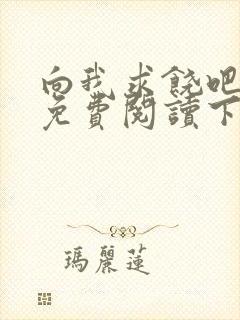 向我求饒吧
免費閱讀下
瑪麗蓮